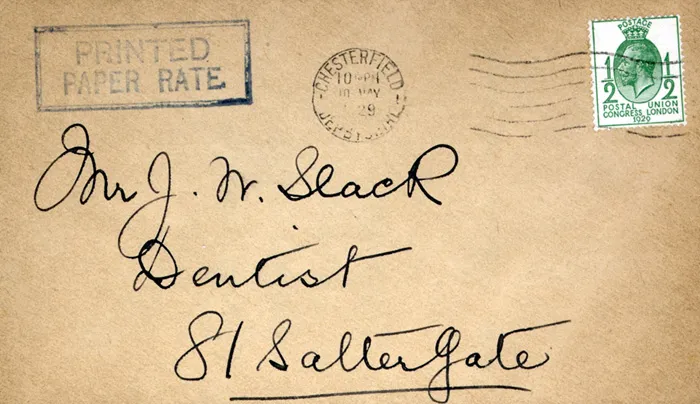 PRINTED
PAPER RATE
CHESTERFIELD
10 PM
10 MAY
29
DERBYSHIRE
POSTAGE
1/2 1/2
POSTAL UNION
CONGRESS LONDON
1929
Mr J. W. Slack
Dentist
81 SalterGate